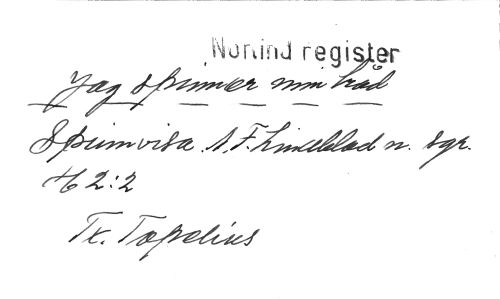 Nortind register
Jag spinner min tråd
Spinnvisa A. F. Lindblad n. sgr.
H 2:2
Tx. Topelius